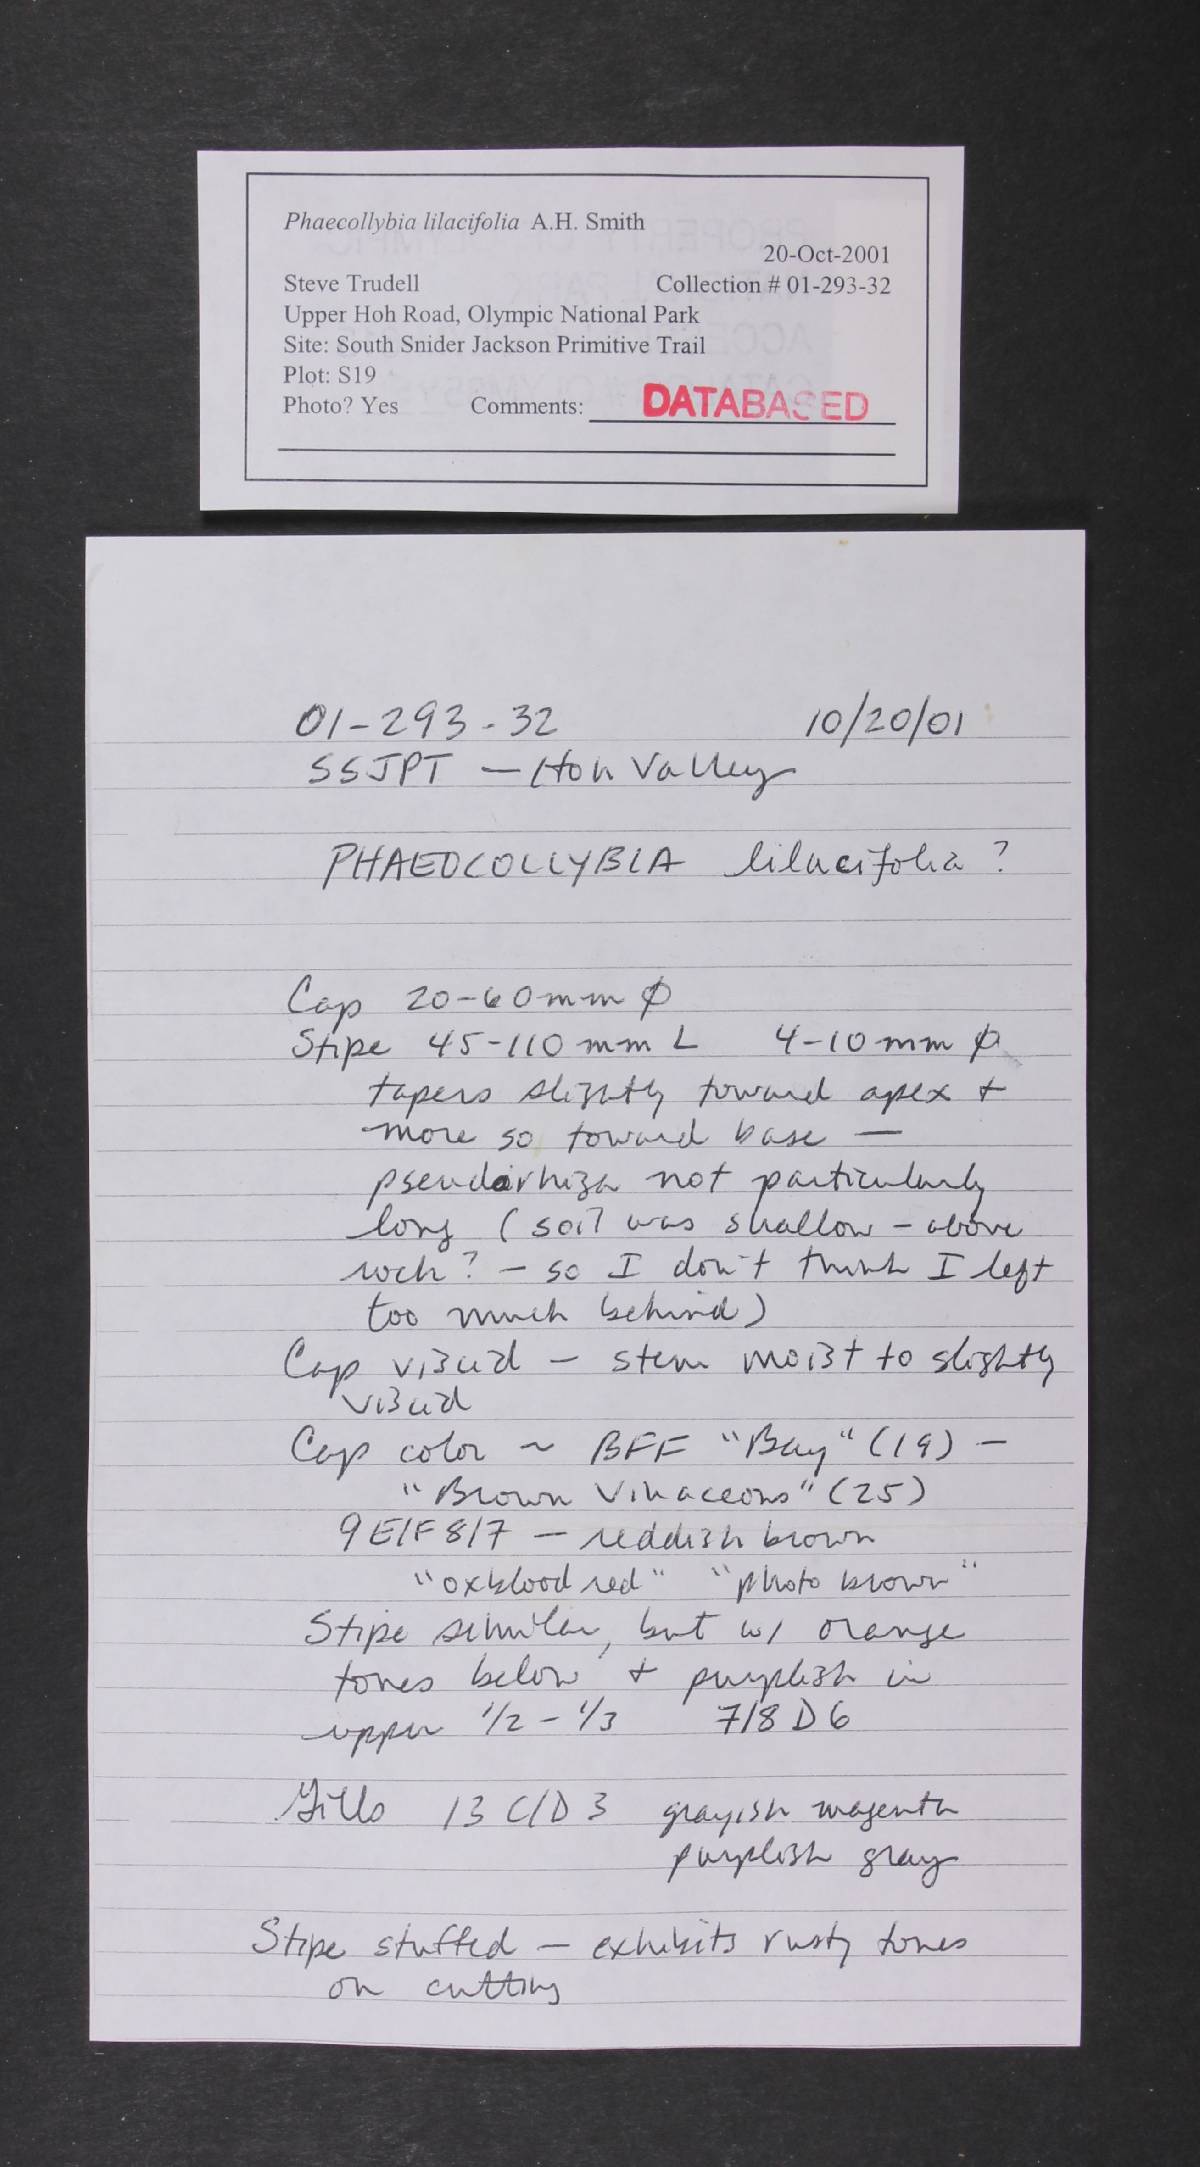 Phaecollybia lilacifolia A.H. Smith
20-Oct-2001
Steve Trudell Collection # 01-293-32
Upper Hoh Road, Olympic National Park
Site: South Snider Jackson Primitive Trail
Plot: S19
Photo? Yes Comments: DATABASED
01-293-32 10/20/01
SSJPT — Hoh Valley
PHAEOCOLLYBIA lilacifolia ?
Cap 20-60mm ϕ
Stipe 45-110 mm L 4-10 mm ϕ
tapers slightly toward apex +
more so toward base —
pseudorhiza not particularly
long (soil was shallow - above
rock? - so I don't think I left
too much behind)
Cap viscid - stem moist to slightly
viscid
Cap color ~ BFF "Bay" (19) -
"Brown Vinaceous" (25)
9E/F8/7 - reddish brown
"oxblood red" "photo brown"
Stipe similar, but w/ orange
tones below + purplish in
upper 1/2 - 1/3 7/8 D 6
Gills 13 C/D 3 grayish magenta
purplish gray
Stipe stuffed - exhibits rusty tones
on cutting